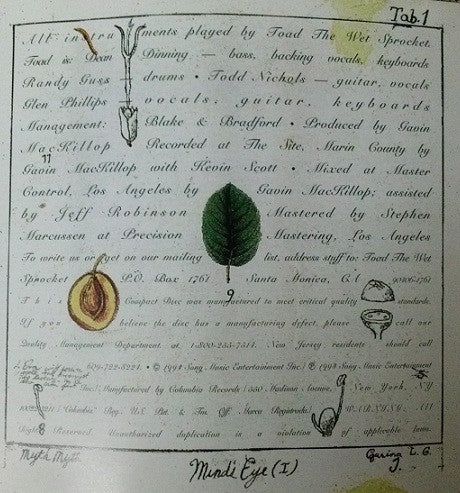 Tab. 1
All instruments played by Toad The Wet Sprocket.
Toad is: Dean Dinning — bass, backing vocals, keyboards
Randy Guss — drums • Todd Nichols — guitar, vocals
Glen Phillips vocals, guitar, keyboards
Management: Blake & Bradford • Produced by Gavin
MacKillop Recorded at The Site, Marin County by
Gavin MacKillop with Kevin Scott • Mixed at Master
Control, Los Angeles by Gavin MacKillop; assisted
by Jeff Robinson Mastered by Stephen
Marcussen at Precision Mastering, Los Angeles
To write us or get on our mailing list, address stuff to: Toad The Wet
Sprocket P.O. Box 1761 Santa Monica, CA 90406-1761
9
This Compact Disc was manufactured to meet critical quality standards.
If you believe the disc has a manufacturing defect, please call our
Quality Management Department at 1-800-255-7514. New Jersey residents should call
609-722-8224. • © 1994 Sony Music Entertainment Inc./ ℗ 1994 Sony Music Entertainment
Inc./ Manufactured by Columbia Records/ 550 Madison Avenue, New York, NY
"Columbia" Reg. U.S. Pat. & Tm. Off. Marca Registrada. WARNING: All
Rights Reserved. Unauthorized duplication is a violation of applicable laws.
8
Myth Myth
Mind's Eye (I)